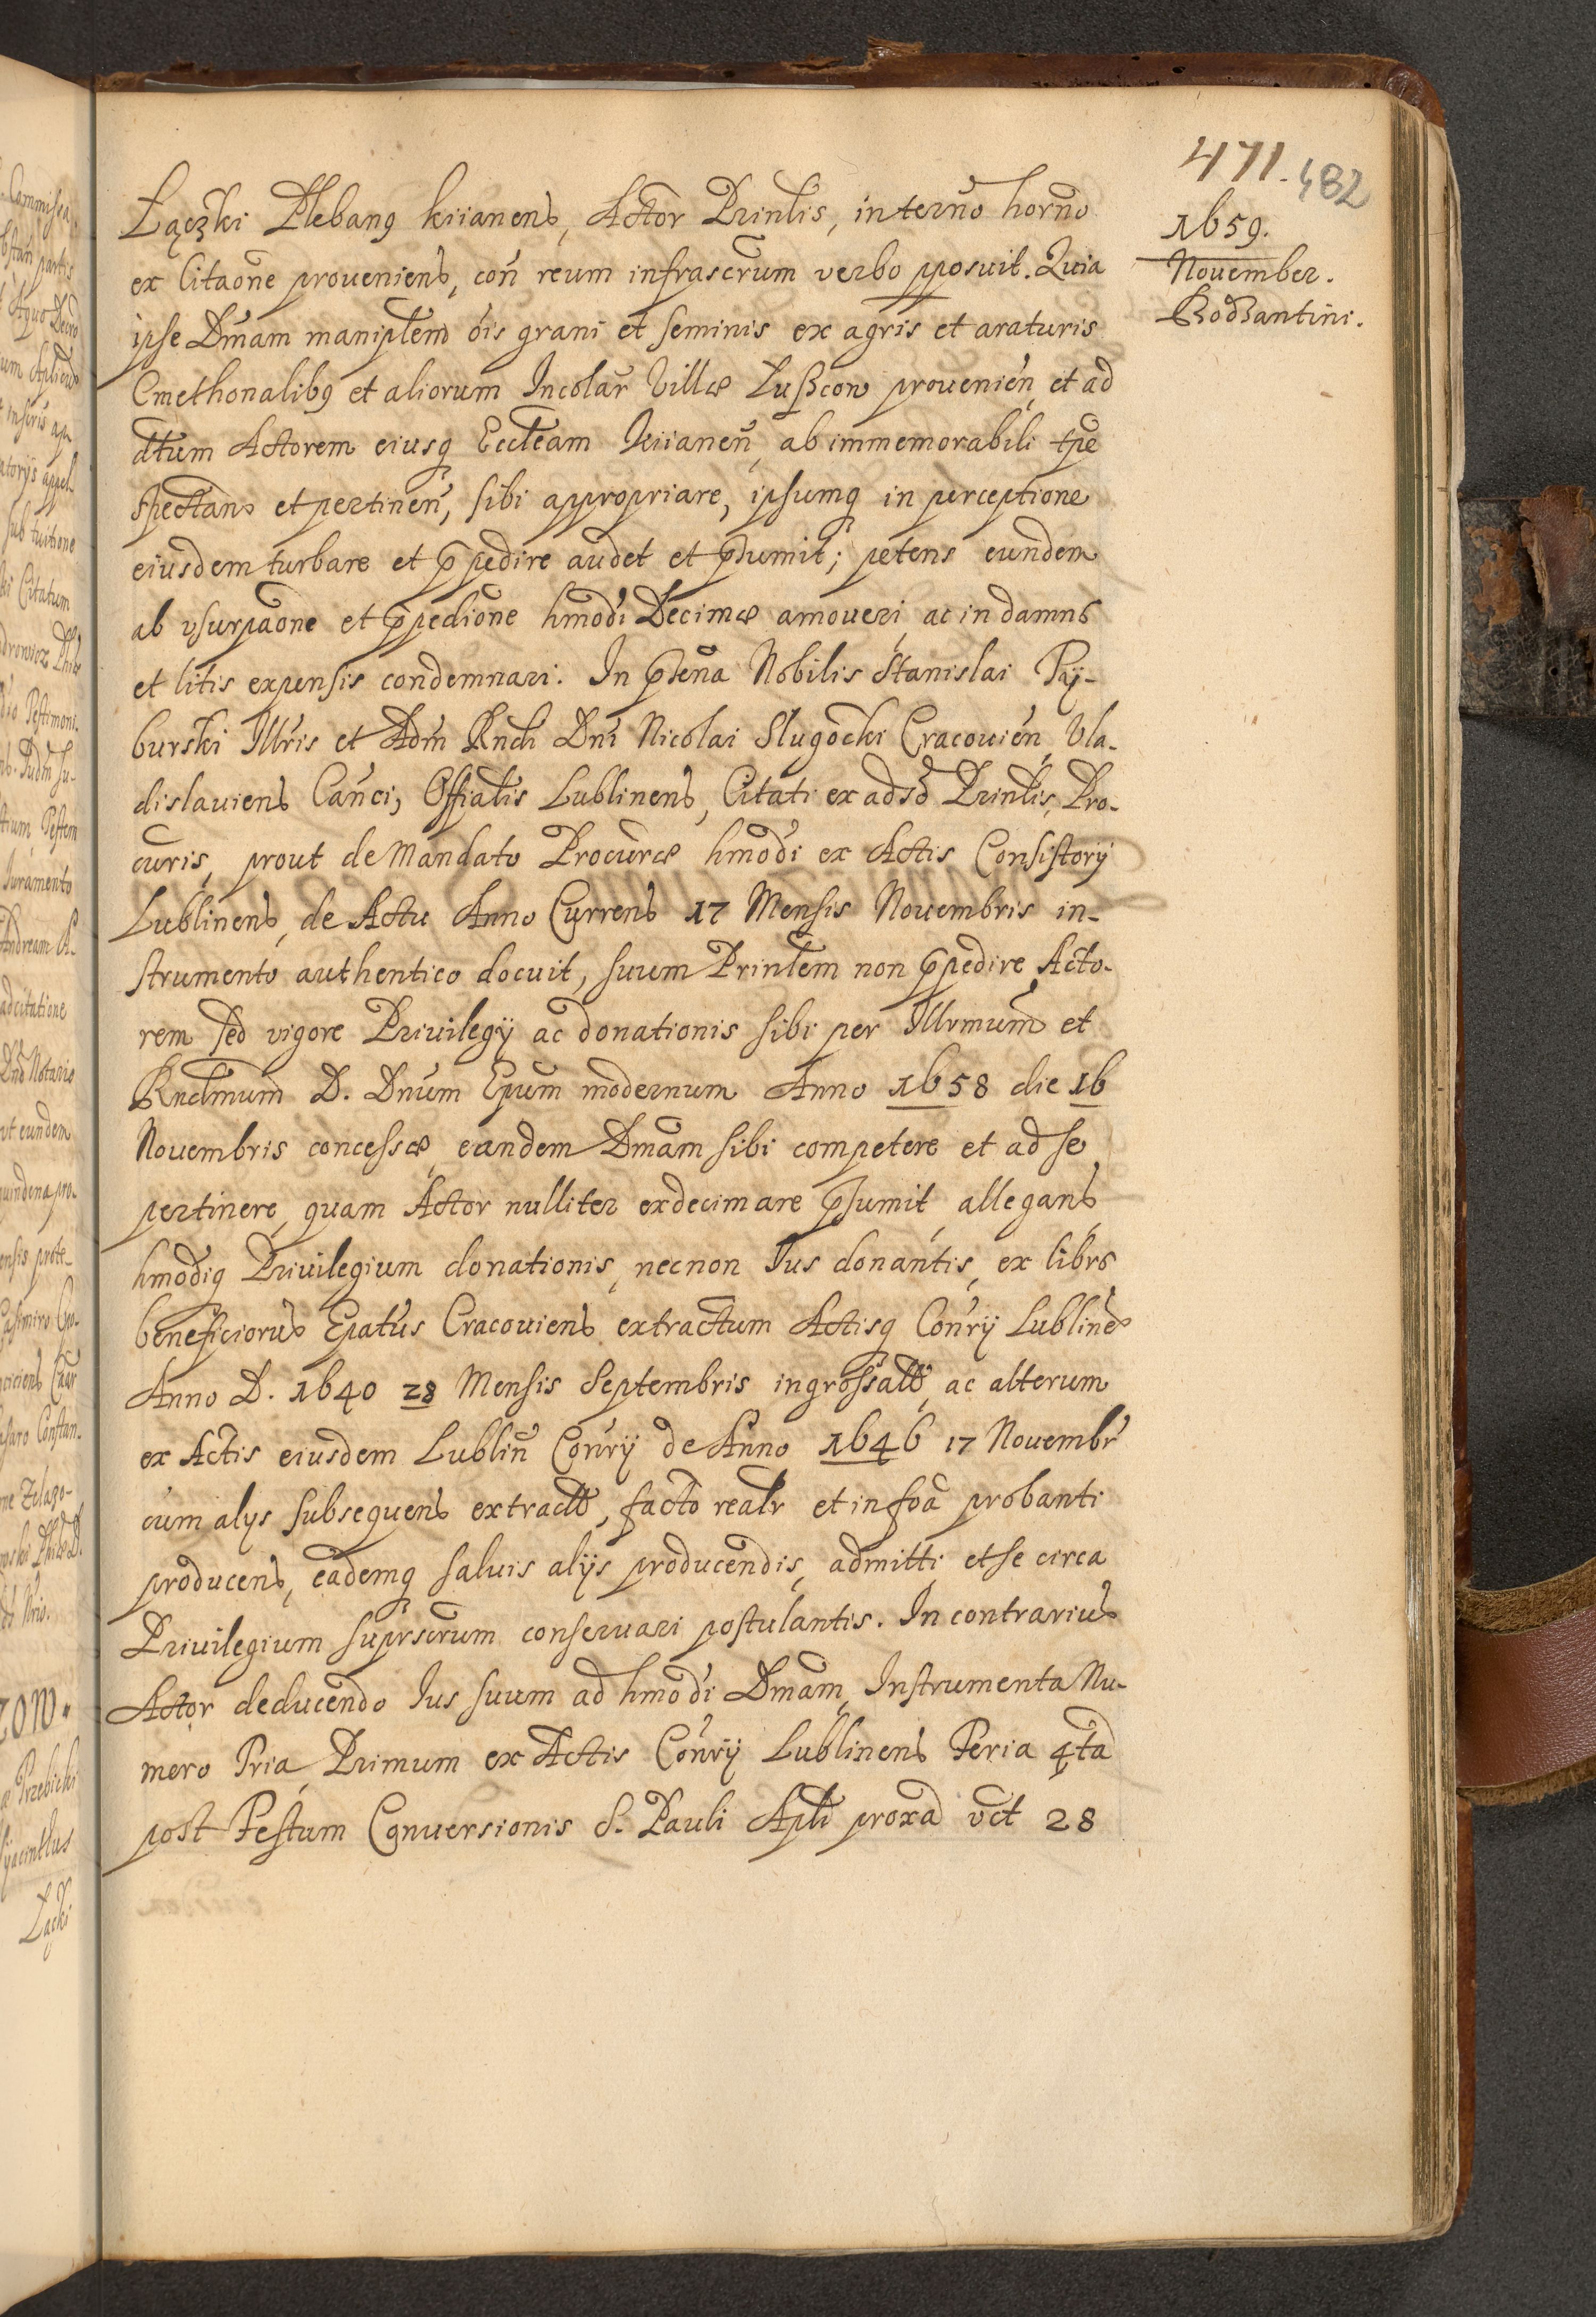 471. 482
1659.
November.
Bodzantini.
Łączki Plebang kiianens, Actor Prinlis, in terño horño
ex Citaone proueniens, con reum infrascrum verbo pposuit. Quia
ipse Dmam maniplem ois grani et seminis ex agris et araturis
Cmethonalibg et aliorum Incolar Villæ Lußcow prouenien, et ad
dtum Actorem eiusq Eccleam Kiianen, ab immemorabili tpe
spectans et pertinen, sibi appropriare, ipsumq in perceptione
eiusdem turbare et ppedire audet et psumit; petens eundem
ab vsurpaone et ppedione hmodi Decimæ amoueri ac in damns
et litis expensis condemnari. In psena Nobilis Stanislai Pay-
burski Illris et Adm Rndi Dni Nicolai Slugocki Cracouien, Vla-
dislauiens Canci, Offialis Lublinens, Citati ex adso Prinlis, Pro-
curis, prout de Mandato Procuræ hmodi ex Actis Consistorij
Lublinens, de Actu Anno Currens 17 Mensis Nouembris in-
strumento authentico docuit, suum Prinlem non ppedire Acto-
rem sed vigore Priuilegij ac donationis sibi per Illrmum et
Rndmum D. Dnum Epum modernum Anno 1658 die 16
Nouembris concessæ, eandem Dmam sibi competere et ad se
pertinere, quam Actor nulliter exdecimare psumit, allegans
hmodiq Priuilegium donationis, necnon Ius donantis, ex libro
beneficiorum Epatus Cracouiens extractum Actisq Conrij Lublinens
Anno D. 1640 28 Mensis Septembris ingrossat, ac alterum
ex Actis eiusdem Lublin Conrij de Anno 1646 17 Nouembr
cum alijs subsequens extract, facto realr et in foa probanti
producens, eademq saluis alijs producendis, admitti et se circa
Priuilegium suprscrum conseruari postulantis. In contrarium
Actor deducendo Ius suum ad hmodi Dmam, Instrumenta Nu-
mero Tria, Primum ex Actis Conrij Lublinens Feria 4ta
post Festum Conuersionis S. Pauli Apli proxa vct 28